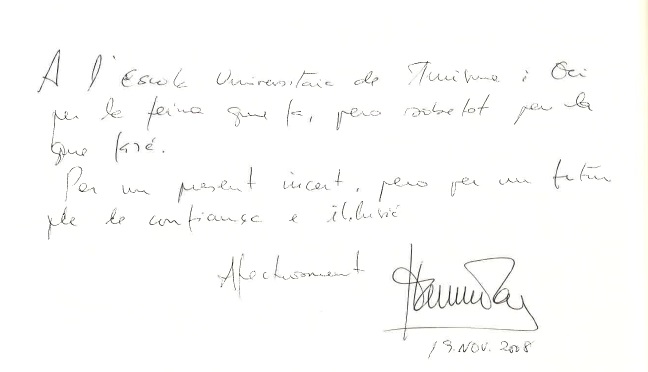 A l'Escola Universitaria de Turisme i Oci
per la feina que fa, però sobretot per la
que farà.
Per un present incert, però per un futur
ple de confiança e il.lusió
Afectuosament
19. NOV. 2008